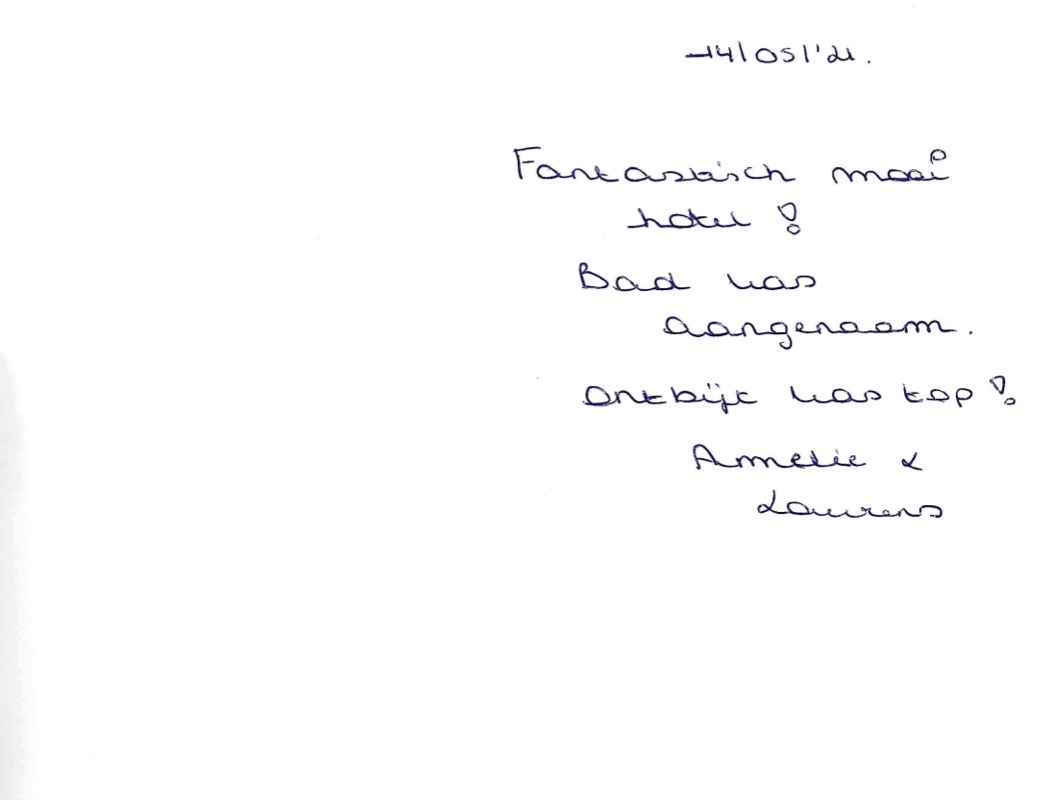 14/05/'21.
Fantastisch mooi
hotel!
Bad was
aangenaam.
Ontbijt was top!
Annelie &
Laurens